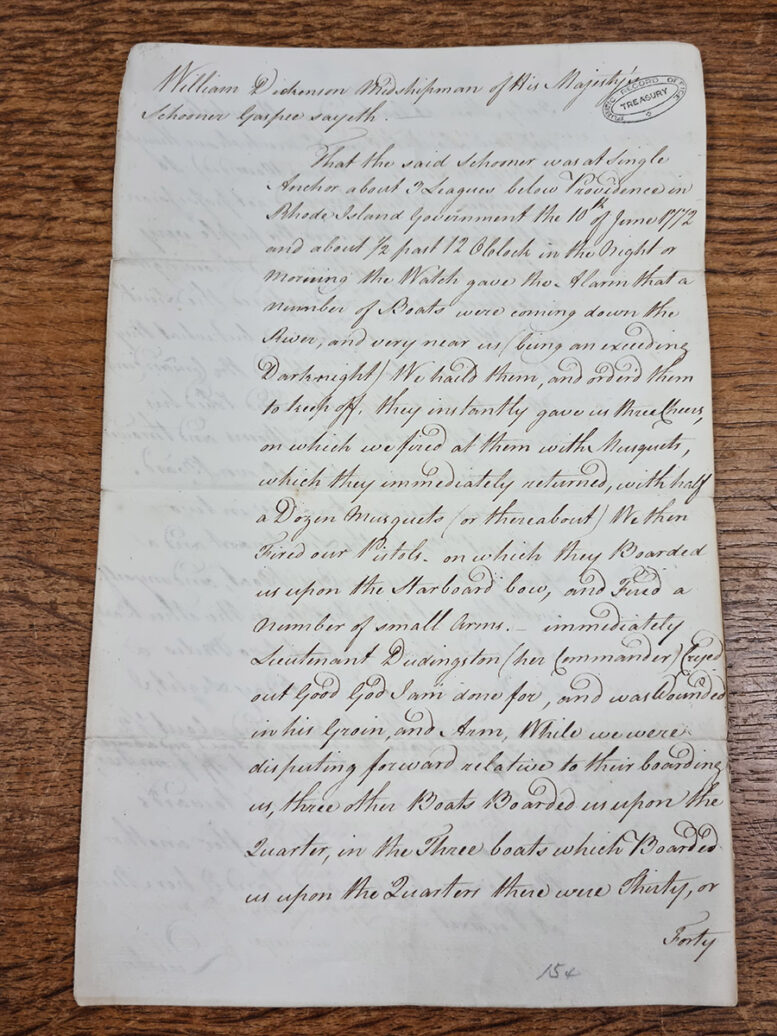 William Dickenson Midshipman of His Majesty's
Schooner Gaspee sayeth.
PUBLIC RECORD OFFICE
TREASURY
That the said Schooner was at Single
Anchor about 3 Leagues below Providence in
Rhode Island Government the 10th of June 1772
and about 1/2 past 12 OClock in the Night or
Morning the Watch gave the Alarm that a
number of Boats were coming down the
River, and very near us (being an exceeding
Dark night) We haild them, and orderd them
to keep off, they instantly gave us three Cheers,
on which we fired at them with Musquets,
which they immediately returned, with half
a Dozen Musquets (or thereabout) We then
Fired our Pistols. on which they Boarded
us upon the Starboard bow, and Fired a
number of small Arms. - immediately
Lieutenant Dudingston (her Commander) Cryed
out Good God I am done for, and was Wounded
in his Groin, and Arm, While we were
disputing forward relative to their boarding
us, three other Boats Boarded us upon the
Quarter, in the Three boats which Boarded
us upon the Quarters there were Thirty, or
Forty
154